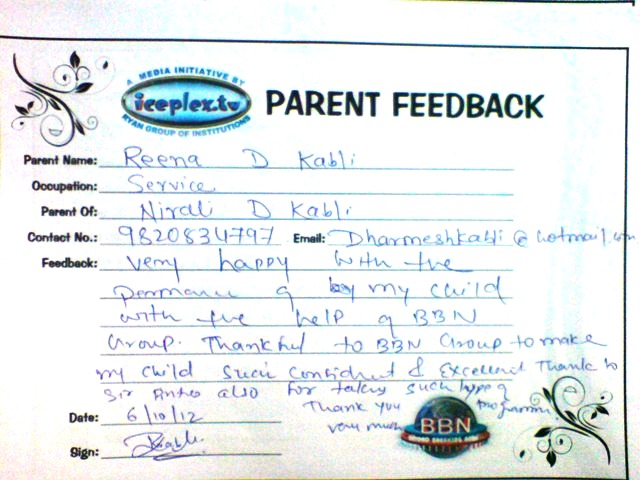 A MEDIA INITIATIVE BY
iceplex.tv
RYAN GROUP OF INSTITUTIONS
PARENT FEEDBACK
Parent Name: Reena D Kabli
Occupation: Service
Parent Of: Nirali D Kabli
Contact No.: 9820834797 Email: Dharmeshkabli@hotmail.com
Feedback: very happy with the
permance of by my child
with the help of BBN
Group. Thankful to BBN Group to make
my child such confident & Excellent Thank to
Sir also for taking such type of
Thank you programm.
very much
Date: 6/10/12
BBN
Sign: